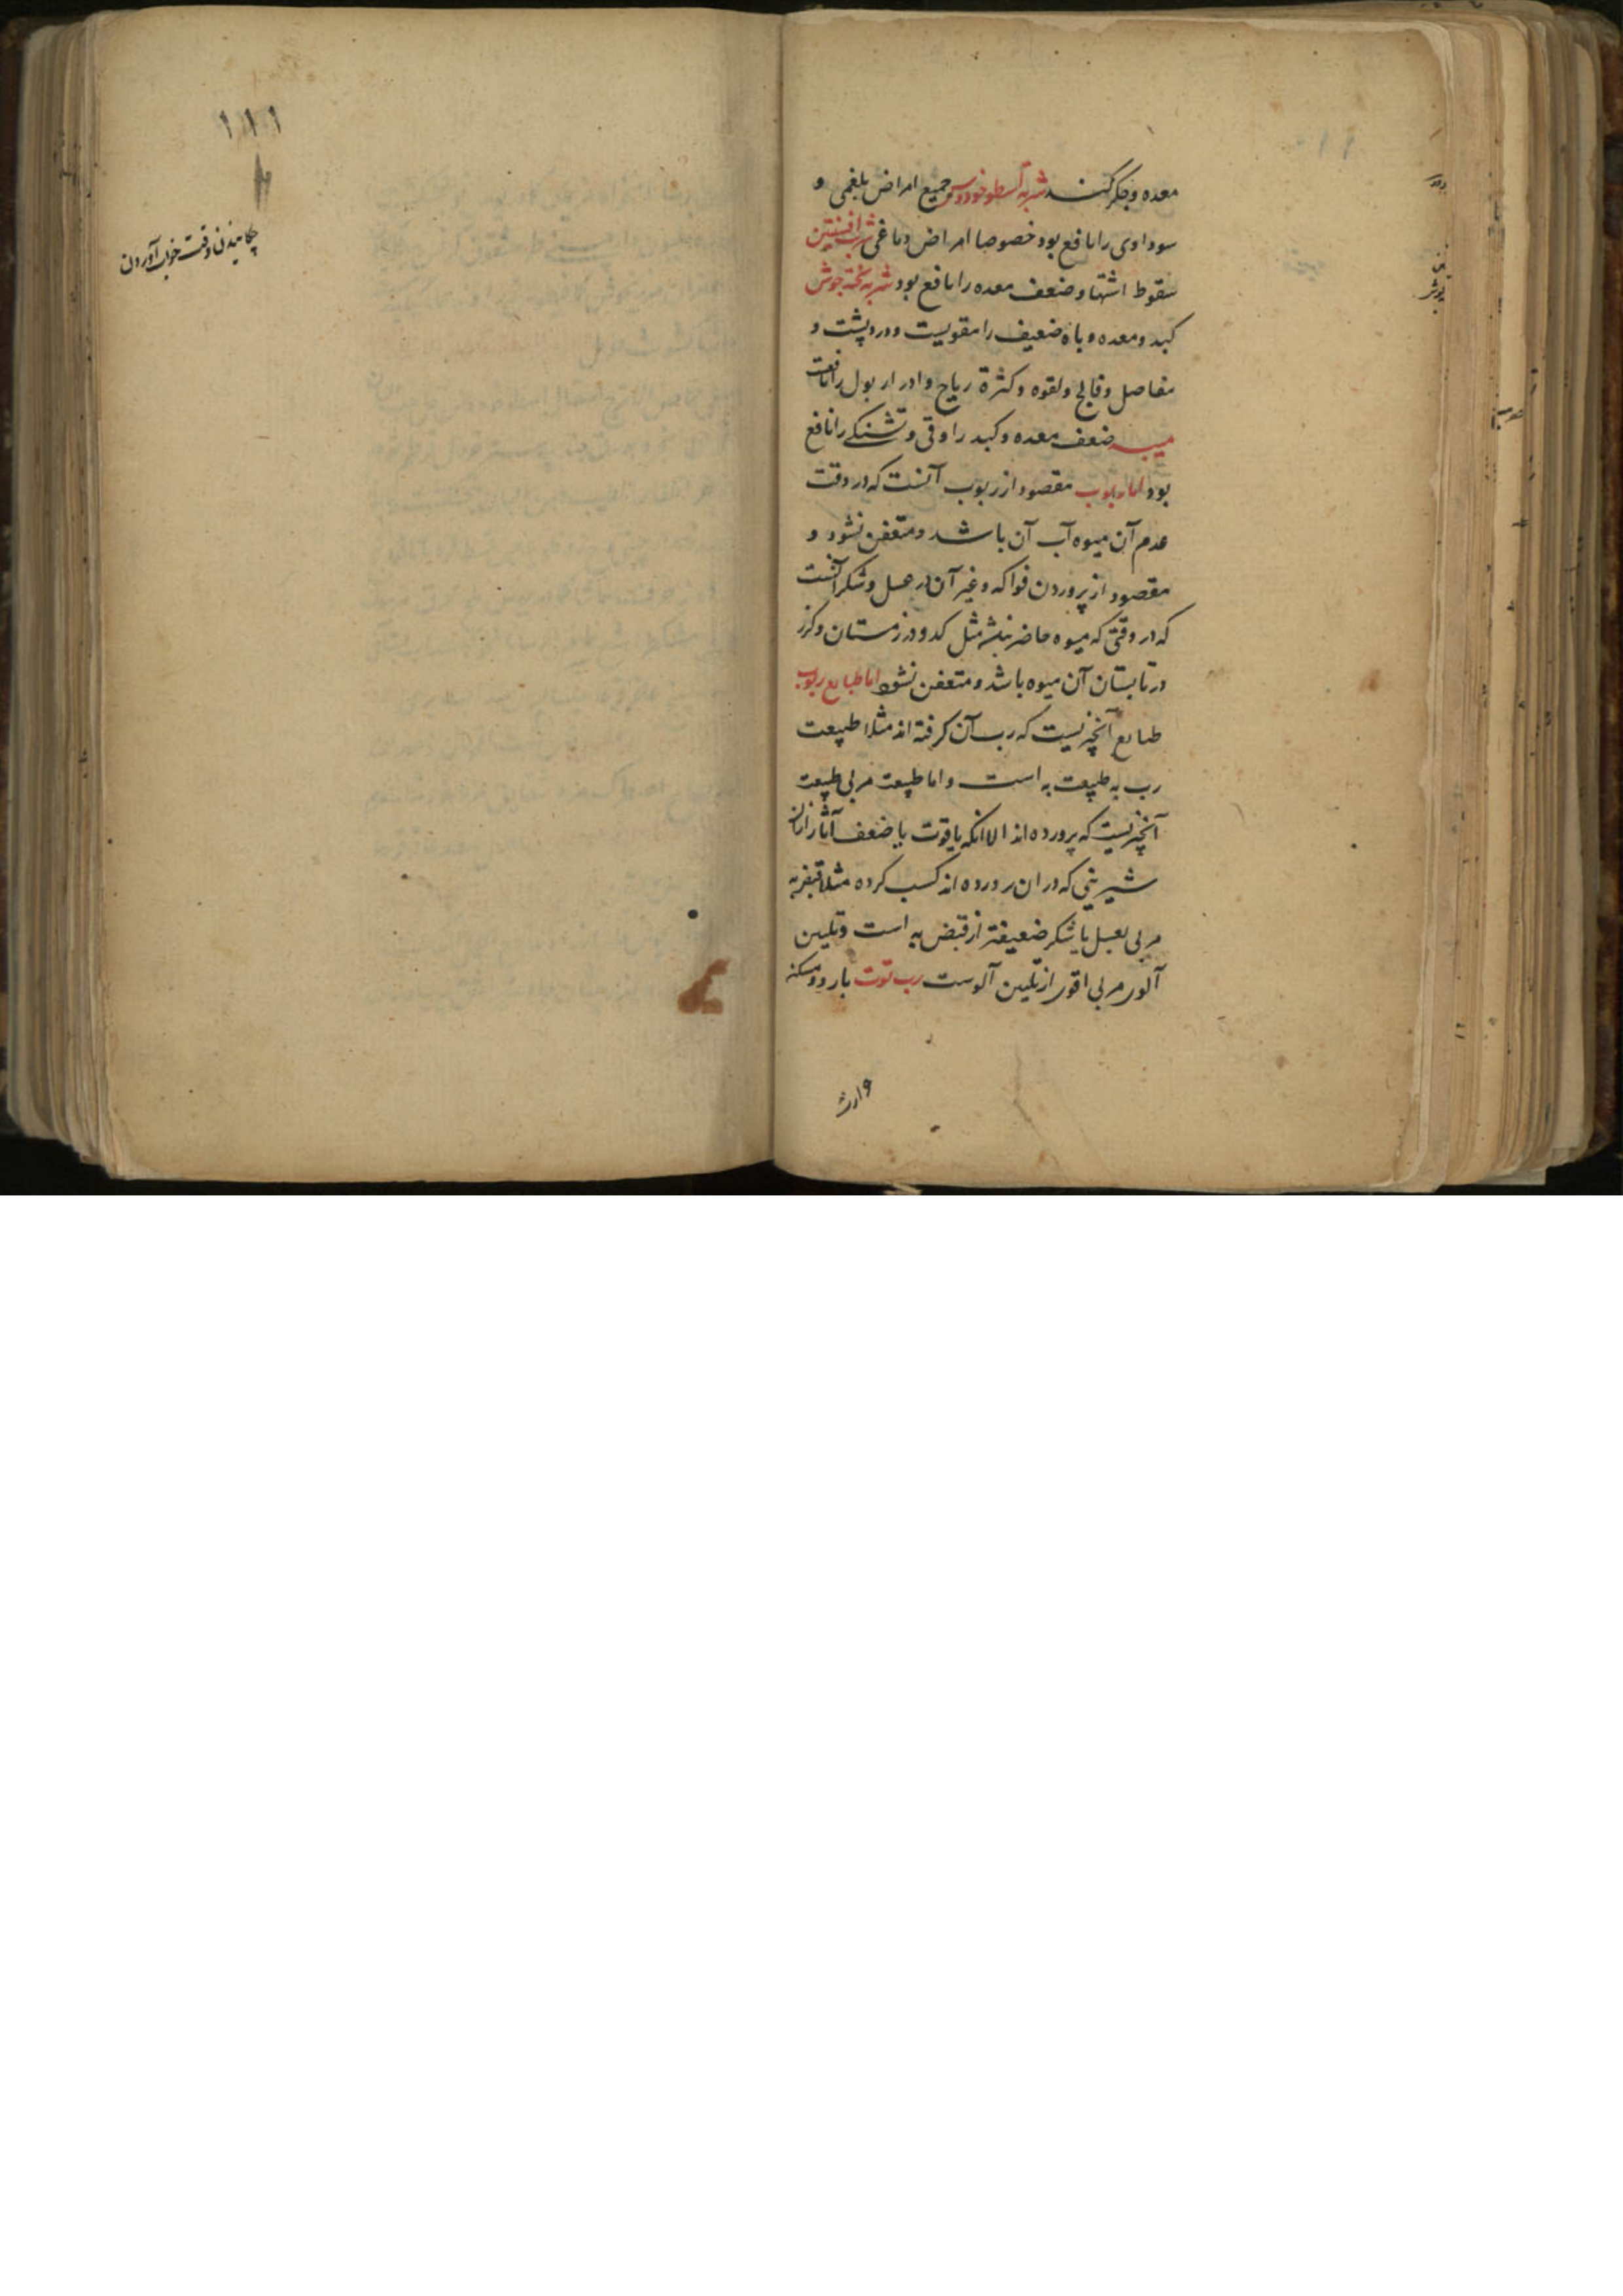 معده و جگر کند شربة اسطوخودوس جمیع امراض بلغمی و
سوداوی را نافع بود خصوصا امراض دماغی شراب افسنتین
سقوط اشتها و ضعف معده را نافع بود شربه پخته جوش
کبد و معده و باه ضعیف را مقویست و درد پشت و
مفاصل و فالج و لقوه و کثرة ریاح و ادرار بول را نافعست
میبه ضعف معده و کبد را و قی و تشنکی را نافع
بود اما ربوب مقصود از ربوب آنست که در وقت
عدم آن میوه آب آن باشد و متعفن نشود و
مقصود از پروردن فواکه و غیر آن در عسل و شکر آنست
که در وقتی که میوه حاضر نباشد مثل کدو در زمستان و کزر
در تابستان آن میوه باشد و متعفن نشود اما طبایع ربوب
طبایع آنچیزیست که رب آن کرفته اند مثلا طبیعت
رب به طبیعت به است و اما طبیعت مربی طبیعت
آنچیزیست که پرورده اند الا انکه یا قوت یا ضعف آثار ازان
شیرینی که در ان پرورده اند کسب کرده مثلا قبض به
مربی بعسل یا شکر ضعیفتر از قبض به است و تلیین
آلوی مربی اقوی از تلیین آلوست رب توت بارد و مسکن
۱۱۱
وقت خواب آوردن